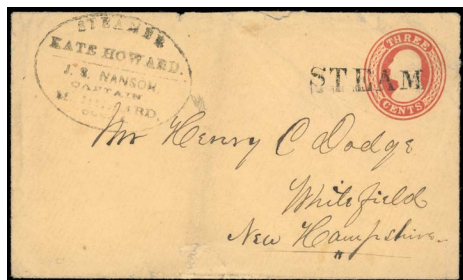 STEAMER
KATE HOWARD.
CAPTAIN
STEAM
THREE
CENTS
Mr Henry C Dodge
Whitefield
New Hampshire